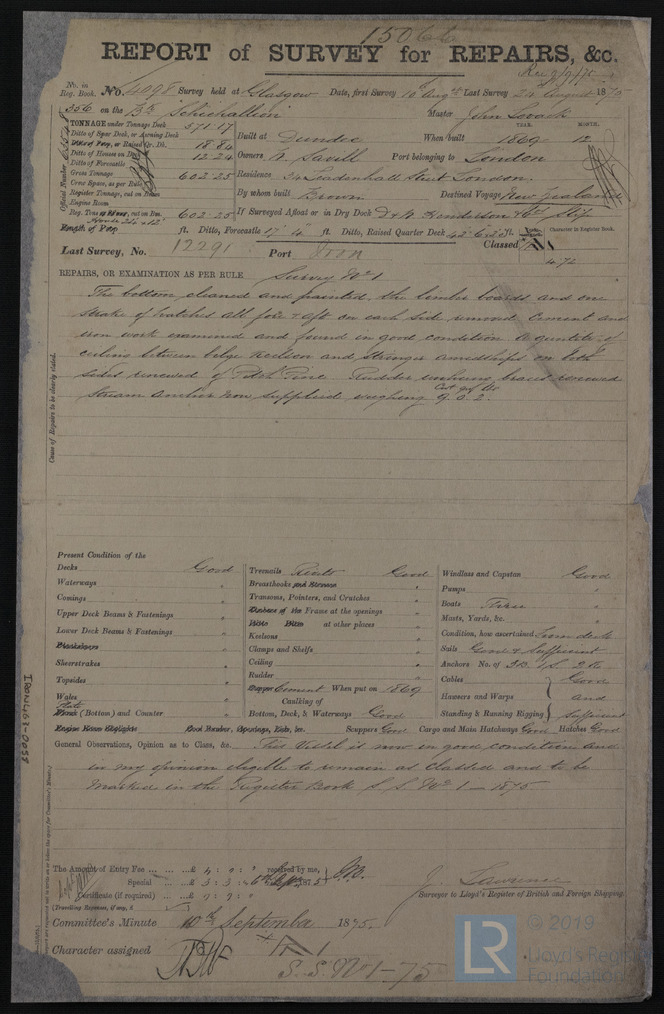 REPORT of SURVEY for REPAIRS, &c.
No. in Reg. Book. No. 4098 Survey held at Glasgow Date, first Survey 10 Augt Last Survey 24 August 1875
356 on the Bk Schiehallion Master John Levack
TONNAGE under Tonnage Deck 571.17
YEAR. MONTH.
Ditto of Spar Deck, or Awning Deck
Built at Dundee When built 1869 12
Ditto of Poop, or Raised Qr. Dk. 18.84
Ditto of Houses on Deck 12.24
Owners W. Savill Port belonging to London
Ditto of Forecastle
Gross Tonnage 602.25
Residence 34 Leadenhall Street London.
Crew Space, as per Rule
Register Tonnage, cut on Beam
By whom built Brown Destined Voyage New Zealand
Engine Room
Reg. Tons as 602.25
If Surveyed Afloat or in Dry Dock D & W. Henderson & Co Slip
Official Number
Length of Poop ft. Ditto, Forecastle 17.4 ft Ditto, Raised Quarter Deck 42.6 ft.
Character in Register Book.
Last Survey, No. 12291 Port Iron Classed A1
4.72
REPAIRS, OR EXAMINATION AS PER RULE Survey No 1
The bottom cleaned and painted, the limber boards and one
strake of hatches all fore & aft on each side removed cement and
iron work examined and found in good condition A quantity of
ceiling between bilge keelson and stringer amidships on both
sides renewed of Pitch Pine Rudder braces renewed
Cwt qrs lbs
Stream anchor now supplied weighing 9.0.2.
Cause of Repairs to be clearly stated.
Present Condition of the
Decks Good
Waterways "
Comings "
Upper Deck Beams & Fastenings "
Lower Deck Beams & Fastenings "
Sheerstrakes "
Topsides "
Wales "
Plate (Bottom) and Counter "
Treenails Rivets Good
Breasthooks "
Transoms, Pointers, and Crutches "
Frame at the openings "
at other places "
Keelsons "
Clamps and Shelfs "
Ceiling "
Rudder "
Cement When put on 1869
Caulking of
Bottom, Deck, & Waterways Good
Windlass and Capstan Good
Pumps "
Boats Three "
Masts, Yards, &c. "
Condition, how ascertained from deck
Sails Good & Sufficient
Anchors No. of 3B. 1S. 2K.
Cables Good
Hawsers and Warps and
Standing & Running Rigging Sufficient
Engine Room Skylights Scuppers Good Cargo and Main Hatchways Good Hatches Good
General Observations, Opinion as to Class, &c. This Vessel is now in good condition and
in my opinion eligible to remain as Classed and to be
marked in the Register Book S. S. No 1 - 1875
The Amount of Entry Fee ... £ 4 : 0 : " received by me,
Special ... £ 3 : 3 : " 1875
Certificate (if required) ... £
(Travelling Expenses, if any, £
J. Lawrence
Surveyor to Lloyd's Register of British and Foreign Shipping.
Committee's Minute 10th September 1875.
Character assigned A 1
S. S. No 1-75
IRON463-0055
LR
© 2019
Lloyd's Register
Foundation